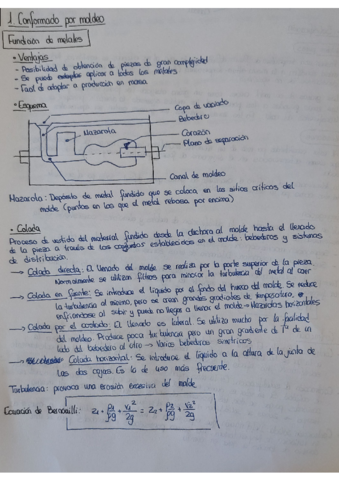 1. Conformado por moldeo
Fundición de metales
• Ventajas
- Posibilidad de obtención de piezas de gran complejidad
- Se puede aplicar a todos los metales
- Facil de adaptar a producción en masa
• Esquema
Copa de vaciado
Bebedero
Mazarota
Corazón
Plano de separación
Canal de moldeo
Mazarota: Depósito de metal fundido que se coloca en los sitios críticos del
molde (puntos en los que el metal rebosa por encima)
• Colada
Proceso de vertido del material fundido desde la cuchara al molde hasta el llenado
de la pieza a través de los conductos establecidos en el molde: bebederos y sistemas
de distribución.
→ Colada directa: El llenado del molde se realiza por la parte superior de la pieza.
Normalmente se utilizan filtros para minorar la turbulencia del metal al caer
→ Colada en fuente: Se introduce el líquido por el fondo del hueco del molde. Se reduce
la turbulencia al mínimo, pero se crean grandes gradientes de temperatura,
enfriandose al subir y puede no llegar a llenar el molde → Mazarotas horizontales
→ Colada por el costado: El llenado es lateral. Se utiliza mucho por la facilidad
del moldeo. Produce poca turbulencia pero un gran gradiente de Tª de un
lado del bebedero al otro → Varios bebederos simétricos
→ Colada horizontal: Se introduce el líquido a la altura de la junta de
las dos cajas. Es la de uso más frecuente.
Turbulencia: provoca una erosión excesiva del molde
Ecuación de Bernouilli: z₁ + p₁/ρg + v₁²/2g = z₂ + p₂/ρg + v₂²/2g